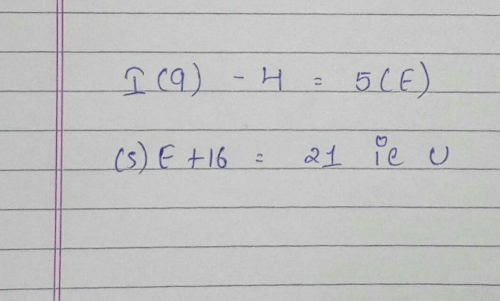 I (9) - 4 = 5 (E)
(5) E + 16 = 21 ie U